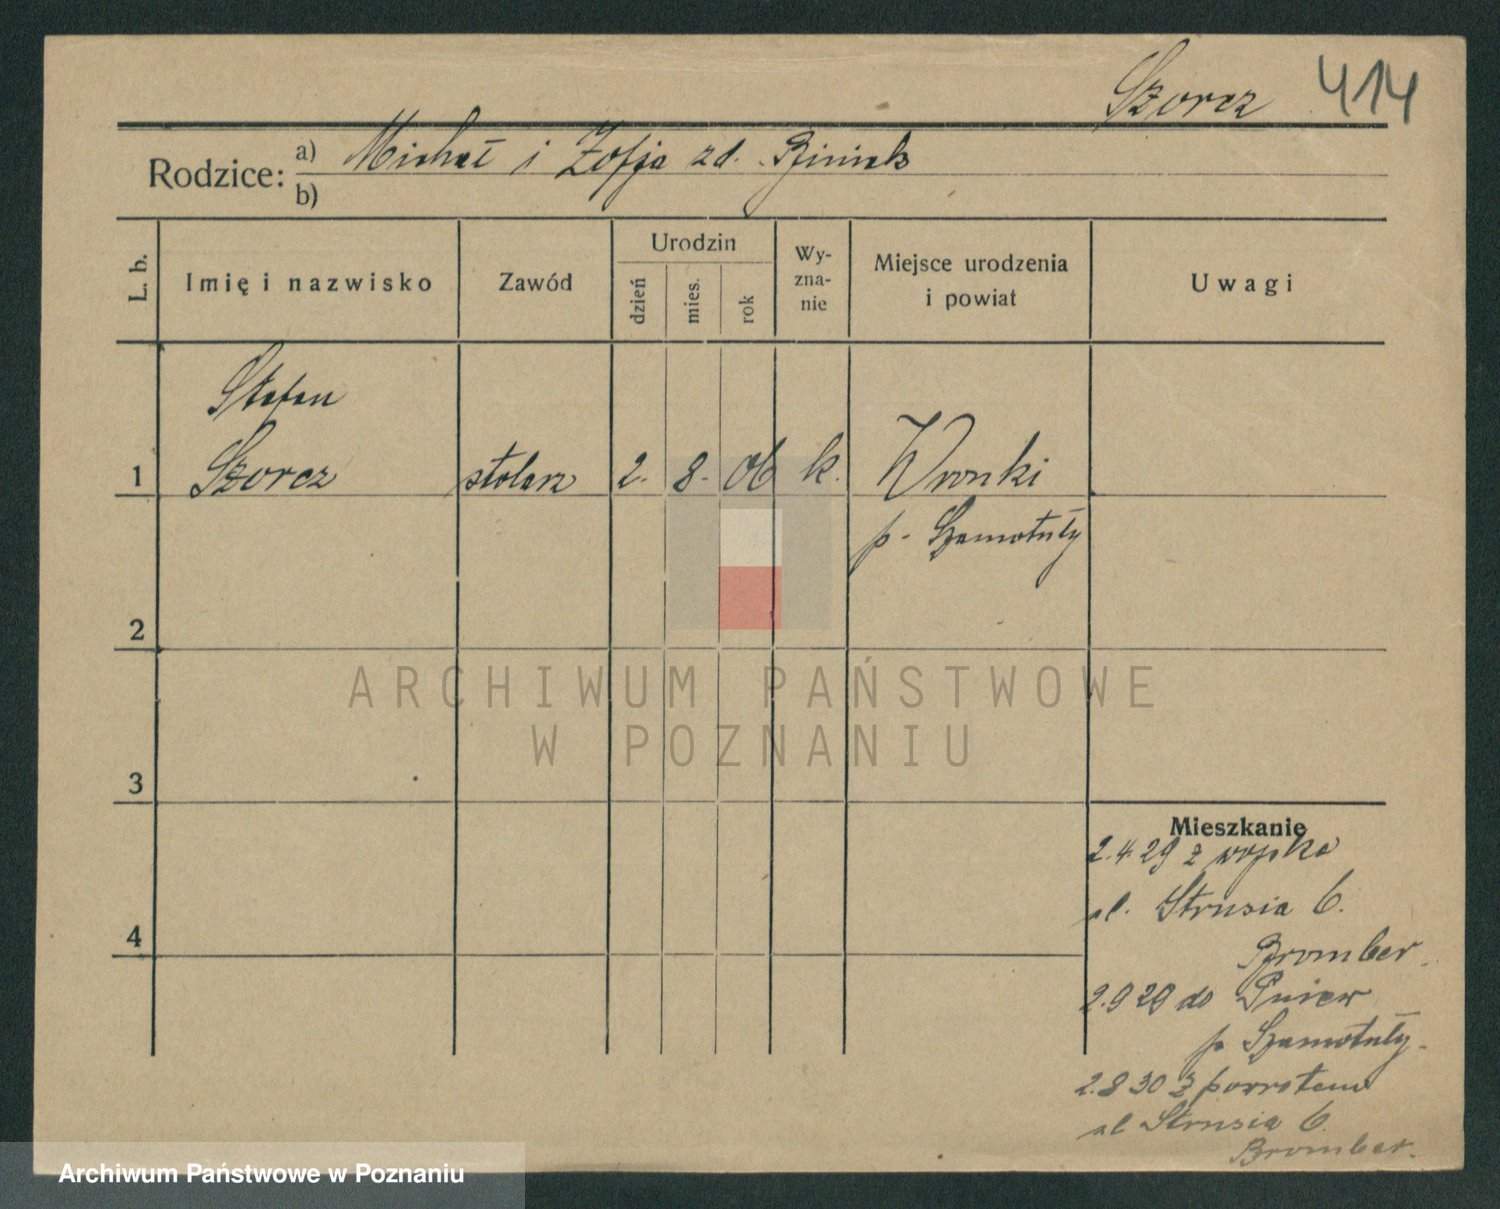 Szorcz 414
Rodzice: a) Michał i Zofja zd. Biniak
b)
L. b.
Imię i nazwisko
Zawód
Urodzin
dzień
mies.
rok
Wy-
zna-
nie
Miejsce urodzenia
i powiat
Uwagi
Stefan
1 Szorcz stolarz 2. 8. 06 k. Wronki
p. Szamotuły
2
3
4
Mieszkanie
2.4.29 z wojska
ul. Strusia 6.
Bromber.
2.9 29 do Pniew
p Szamotuły.
2.8 30 z powrotem
ul Strusia 6
Bromber.
ARCHIWUM PAŃSTWOWE
W POZNANIU
Archiwum Państwowe w Poznaniu